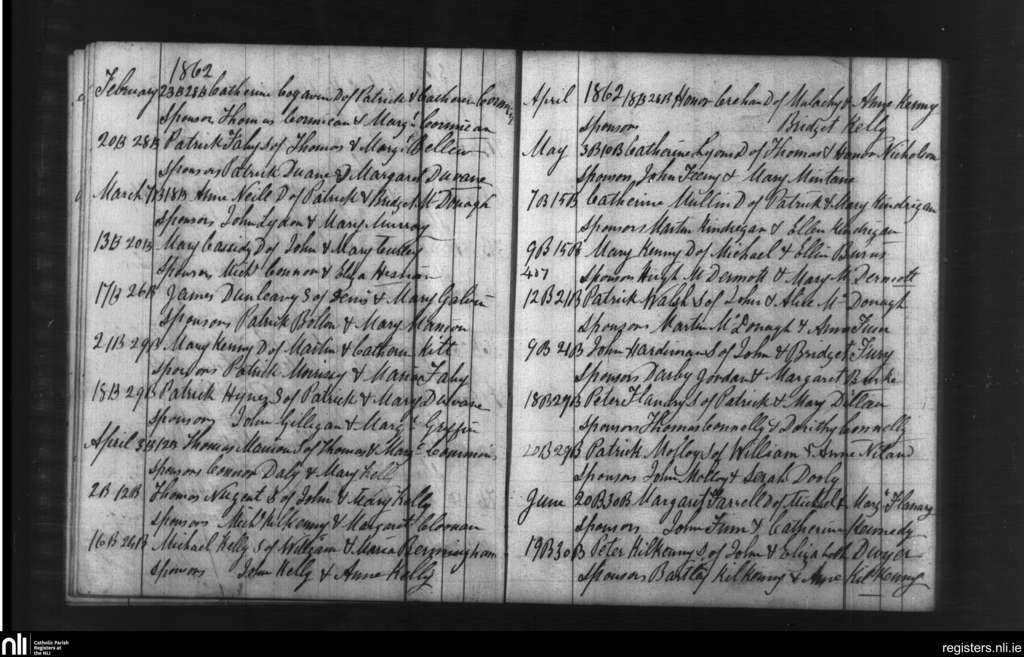 1862
February 23B 28B Catherine Cogaven D of Patrick & Catherine
Sponsors Thomas Cormican & Margt. Cormican
20B 28B Patrick Fahy S of Thomas & Margt. Bellew
Sponsors Patrick Duane & Margaret Duvane
March 7B 18B Anne Neill D of Patrick & Bridget McDonagh
Sponsors John Lydon & Mary Murray
13B 20B Mary Cassidy D of John & Mary Curley
Sponsors Michl. Connor & Eliza
17B 26B James Dunleavy S of Denis & Mary Galvin
Sponsors Patrick Bolton & Mary Manion
21B 29B Mary Kenny D of Martin & Cathern Kitt
Sponsors Patrick Morrisey & Maria Fahy
18B 29B Patrick Hynes S of Patrick & Mary Duvane
sponsors John Gilligan & Margt. Griffin
April 3B 12B Thomas Manion S of Thomas & Margt.
Sponsors Connor Daly & Mary Kelly
2B 12B Thomas Nugent S of John & Mary Kelly
Sponsors Michl Kilkenny & Margaret
16B 26B Michael Kelly S of William & Maria Bermingham
Sponsors John Kelly & Anne Kelly
April 1862 18B 28B Honor Crehan D of Malachy & Anne Kenny
Sponsors Bridget Kelly
May 3B 10B Catherine Lyons D of Thomas & Honor Nicholson
Sponsors John Feeny & Mary
7B 15B Catherine Mullin D of Patrick & Mary Kindrigan
Sponsors Martin Kindregan & Ellen Kindregan
9B 15B Mary Kenny D of Michael & Ellen Burns
407 Sponsors Hugh McDermott & Mary McDermott
12B 21B Patrick Walsh S of John & Alice McDonagh
Sponsors Martin McDonagh & Anne Finn
9B 21B John Hardiman S of John & Bridget Fury
Sponsors Darby Jordan & Margaret Burke
18B 29B Peter S of Patrick & Mary Dillon
Sponsors Thomas Connolly & Dorithy Connolly
20B 29B Patrick S of William & Anne Niland
Sponsors John Molloy & Sarah Dooly
June 20B 30B Margaret Farrell D of Michael & Margt Flanary
Sponsors John Finn & Catherine Kennedy
19B 30B Peter Kilkenny S of John & Elizabeth Dwyer
Sponsors Bartley Kilkenny & Anne Kilkenny
nli
Catholic Parish
Registers at
the NLI
registers.nli.ie